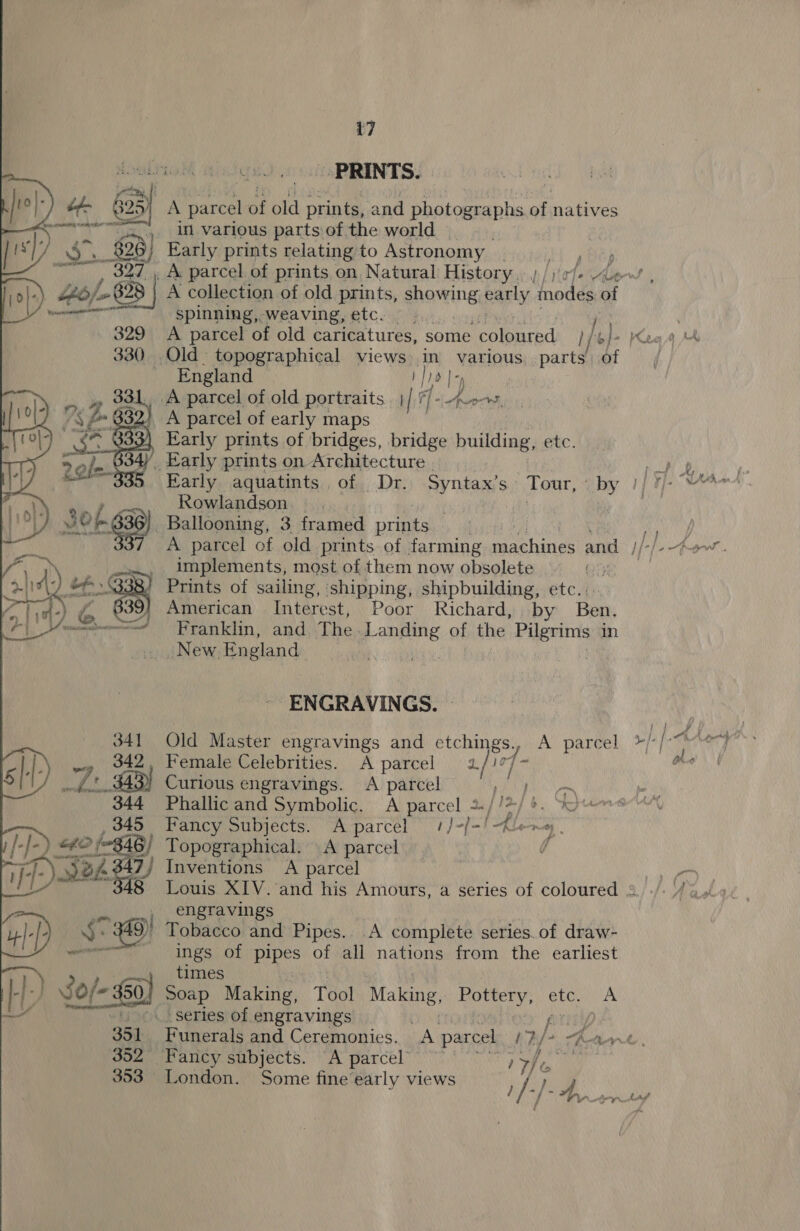 17
PRINTS.
325 A parcel of old prints, and photographs of natives
in various parts of the world
326 Early prints relating to Astronomy
327 A parcel of prints on Natural History
328 A collection of old prints, showing early modes of
spinning, weaving, etc.
329 A parcel of old caricatures, some coloured
330 Old topographical views in various parts of
England
331 A parcel of old portraits
632 A parcel of early maps
633 Early prints of bridges, bridge building, etc.
634 Early prints on Architecture
335 Early aquatints of Dr. Syntax's Tour, by
Rowlandson
636 Ballooning, 3 framed prints
337 A parcel of old prints of farming machines and
implements, most of them now obsolete
338 Prints of sailing, shipping, shipbuilding, etc.
639 American Interest, Poor Richard, by Ben.
Franklin, and The Landing of the Pilgrims in
New England
ENGRAVINGS.
341 Old Master engravings and etchings, A parcel
342 Female Celebrities. A parcel
343 Curious engravings. A parcel
344 Phallic and Symbolic. A parcel
345 Fancy Subjects. A parcel
346 Topographical. A parcel
347 Inventions A parcel
348 Louis XIV. and his Amours, a series of coloured
engravings
349 Tobacco and Pipes. A complete series of draw-
ings of pipes of all nations from the earliest
times
350 Soap Making, Tool Making, Pottery, etc. A
series of engravings
351 Funerals and Ceremonies. A parcel
352 Fancy subjects. A parcel
353 London. Some fine early views